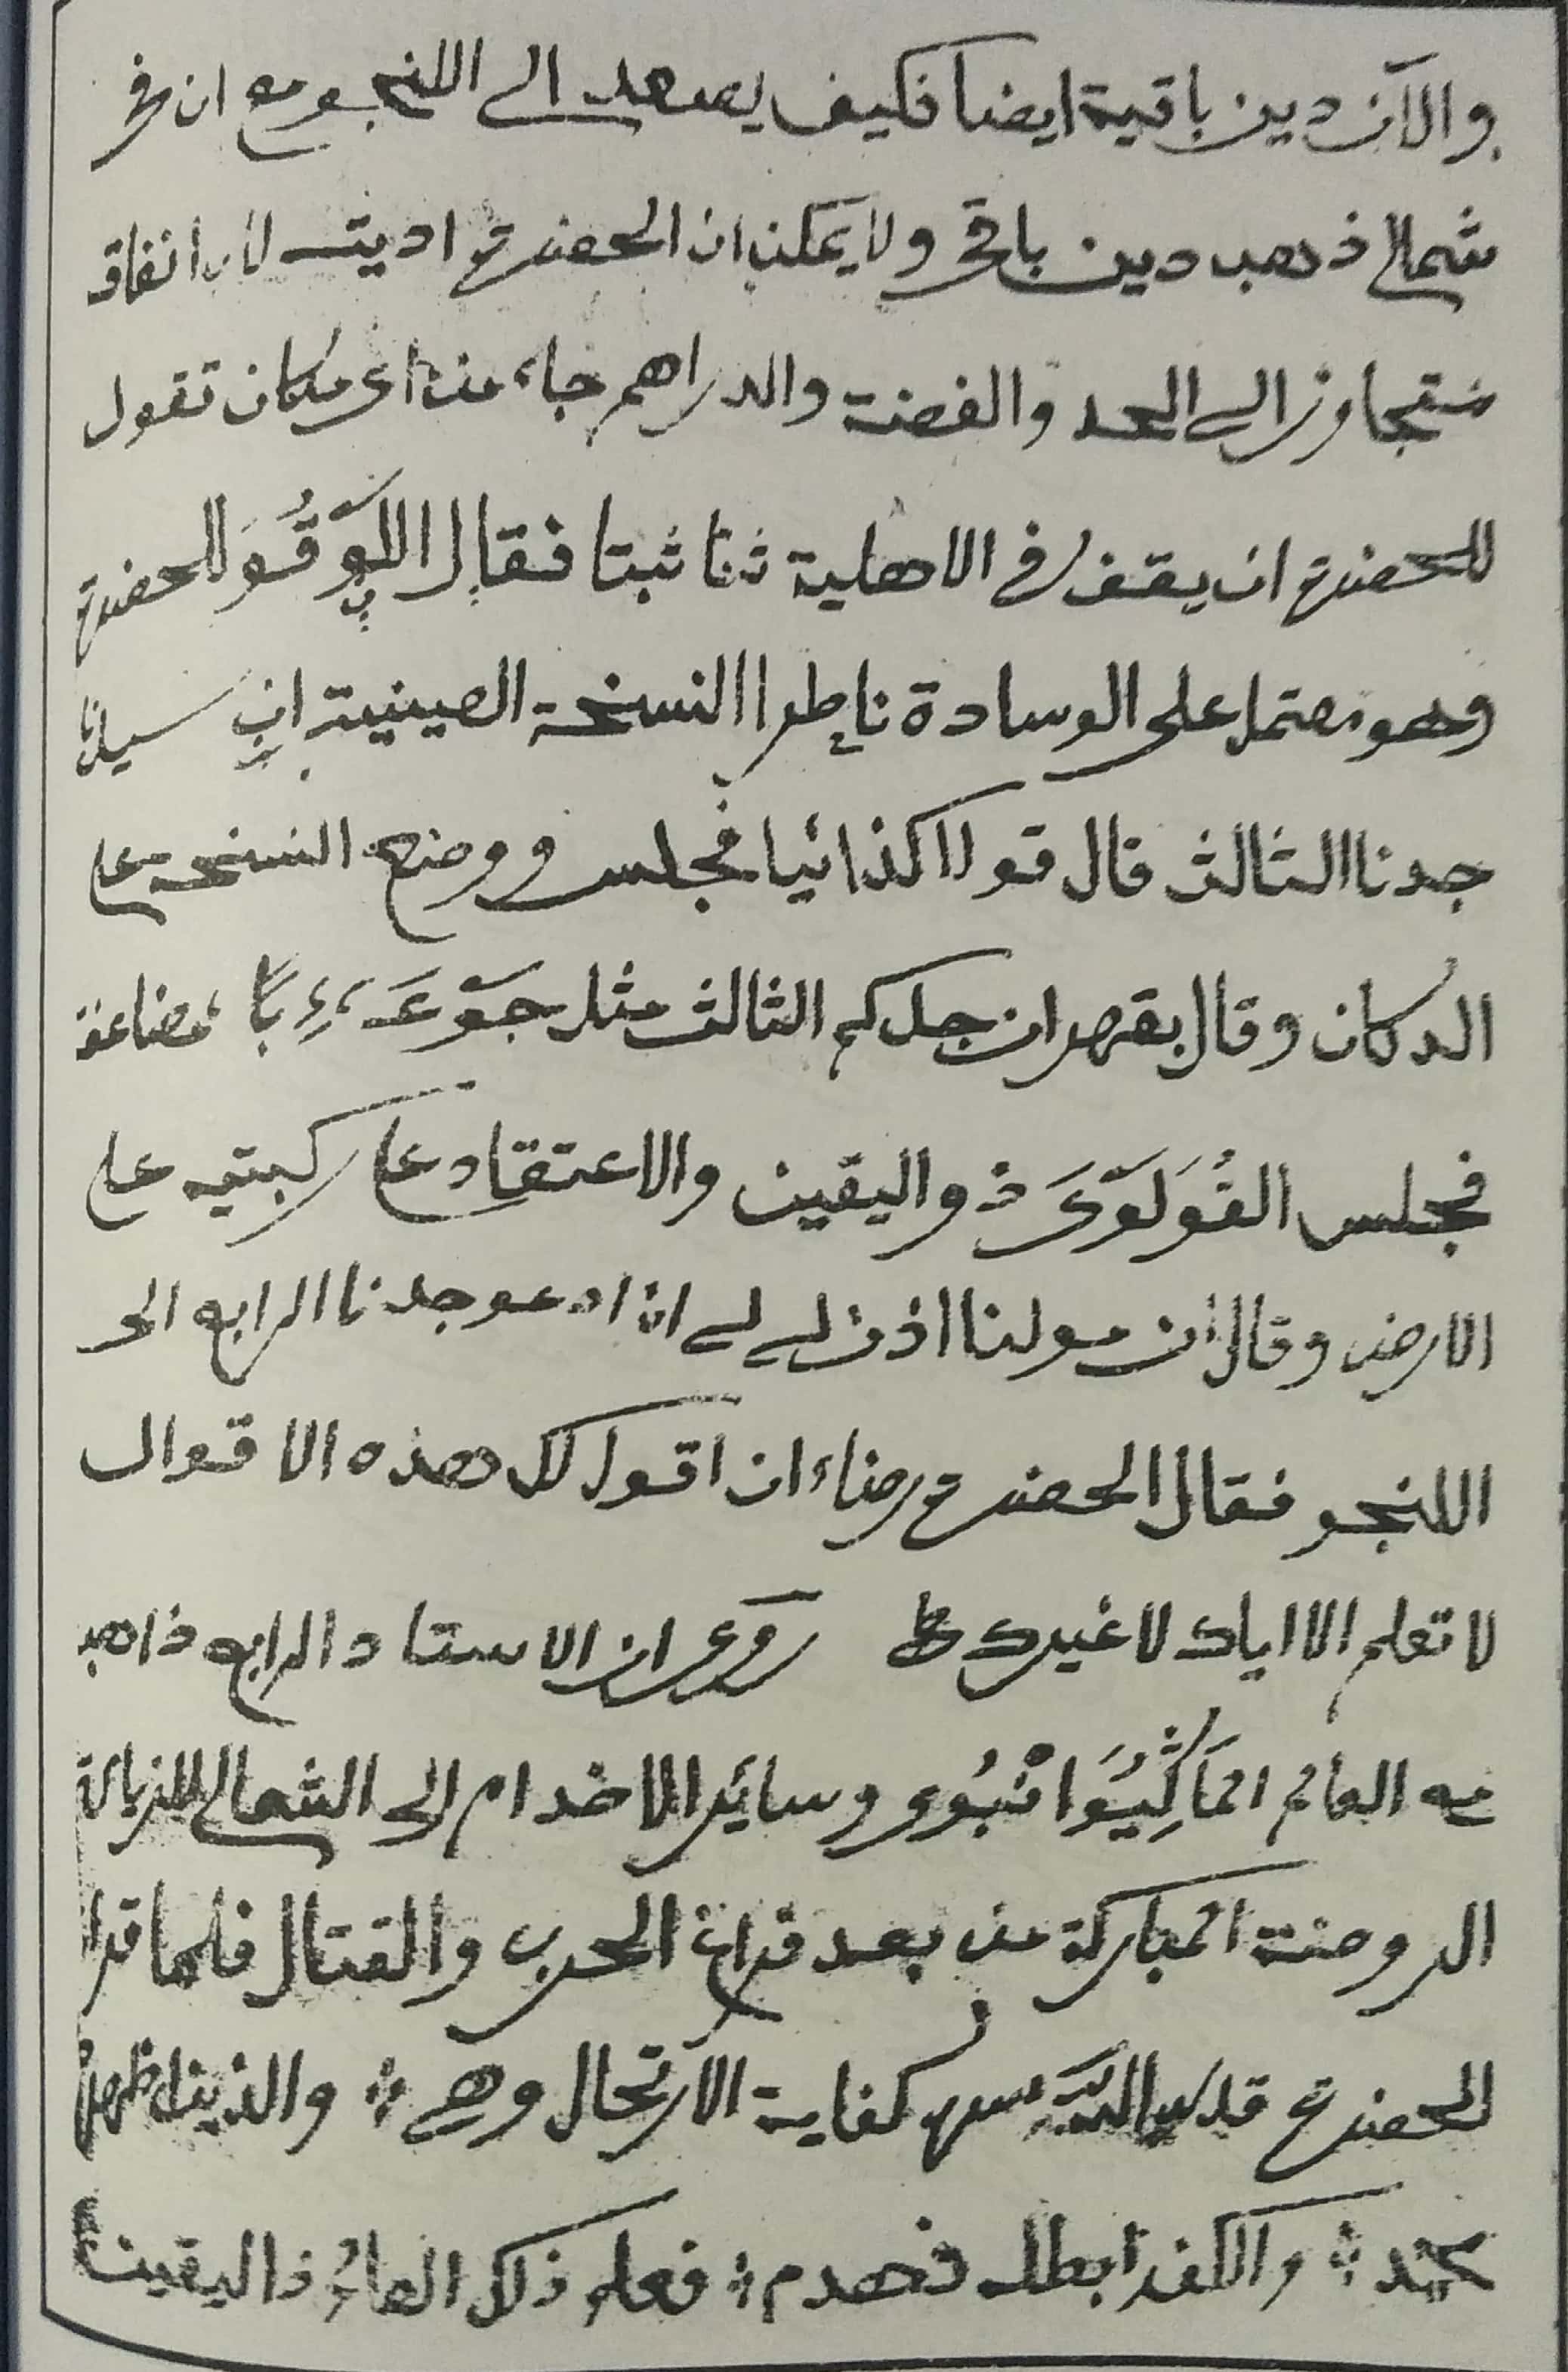 والآن دين باقية ايضا فكيف يصعد الى اللنجو مع ان في
شمالي ذهب دين باقي ولا يمكن ان الحضرة اديت لان انفاق
متجاوز الى الحد والفضة والدراهم جاء من اي مكان تقول
للحضرة ان يقف في الاهلية ثنا ثبتا فقال للحضرة
وهو معتمل على الوسادة ناطرا النسخة الصينية ان سيدنا
جدنا الثالث قال قولا كذائيا فجلس ووضع النسخة على
الدكان وقال بقهر ان جدكم الثالث مثل
فجلس ذو اليقين والاعتقاد على ركبتيه على
الارض وقال ان مولنا اذن لي ان ادعو جدنا الرابع الى
اللنجو فقال الحضرة رضاء ان اقول لك هذه الاقوال
لا تعلم الا اياك لا غيرك روي ان الاستاد الرابع ذاهب
مع العالم وساير الاخدام الى الشمالي للزيارة
الروضة المباركة من بعد فراغ الحرب والقتال فلما قرا
الحضرة قدس الله سره كفاية الارتحال وهي والذين اظهر
محمد والكفر ابطل فهدم فعلم ذلك العالم ذا اليقين